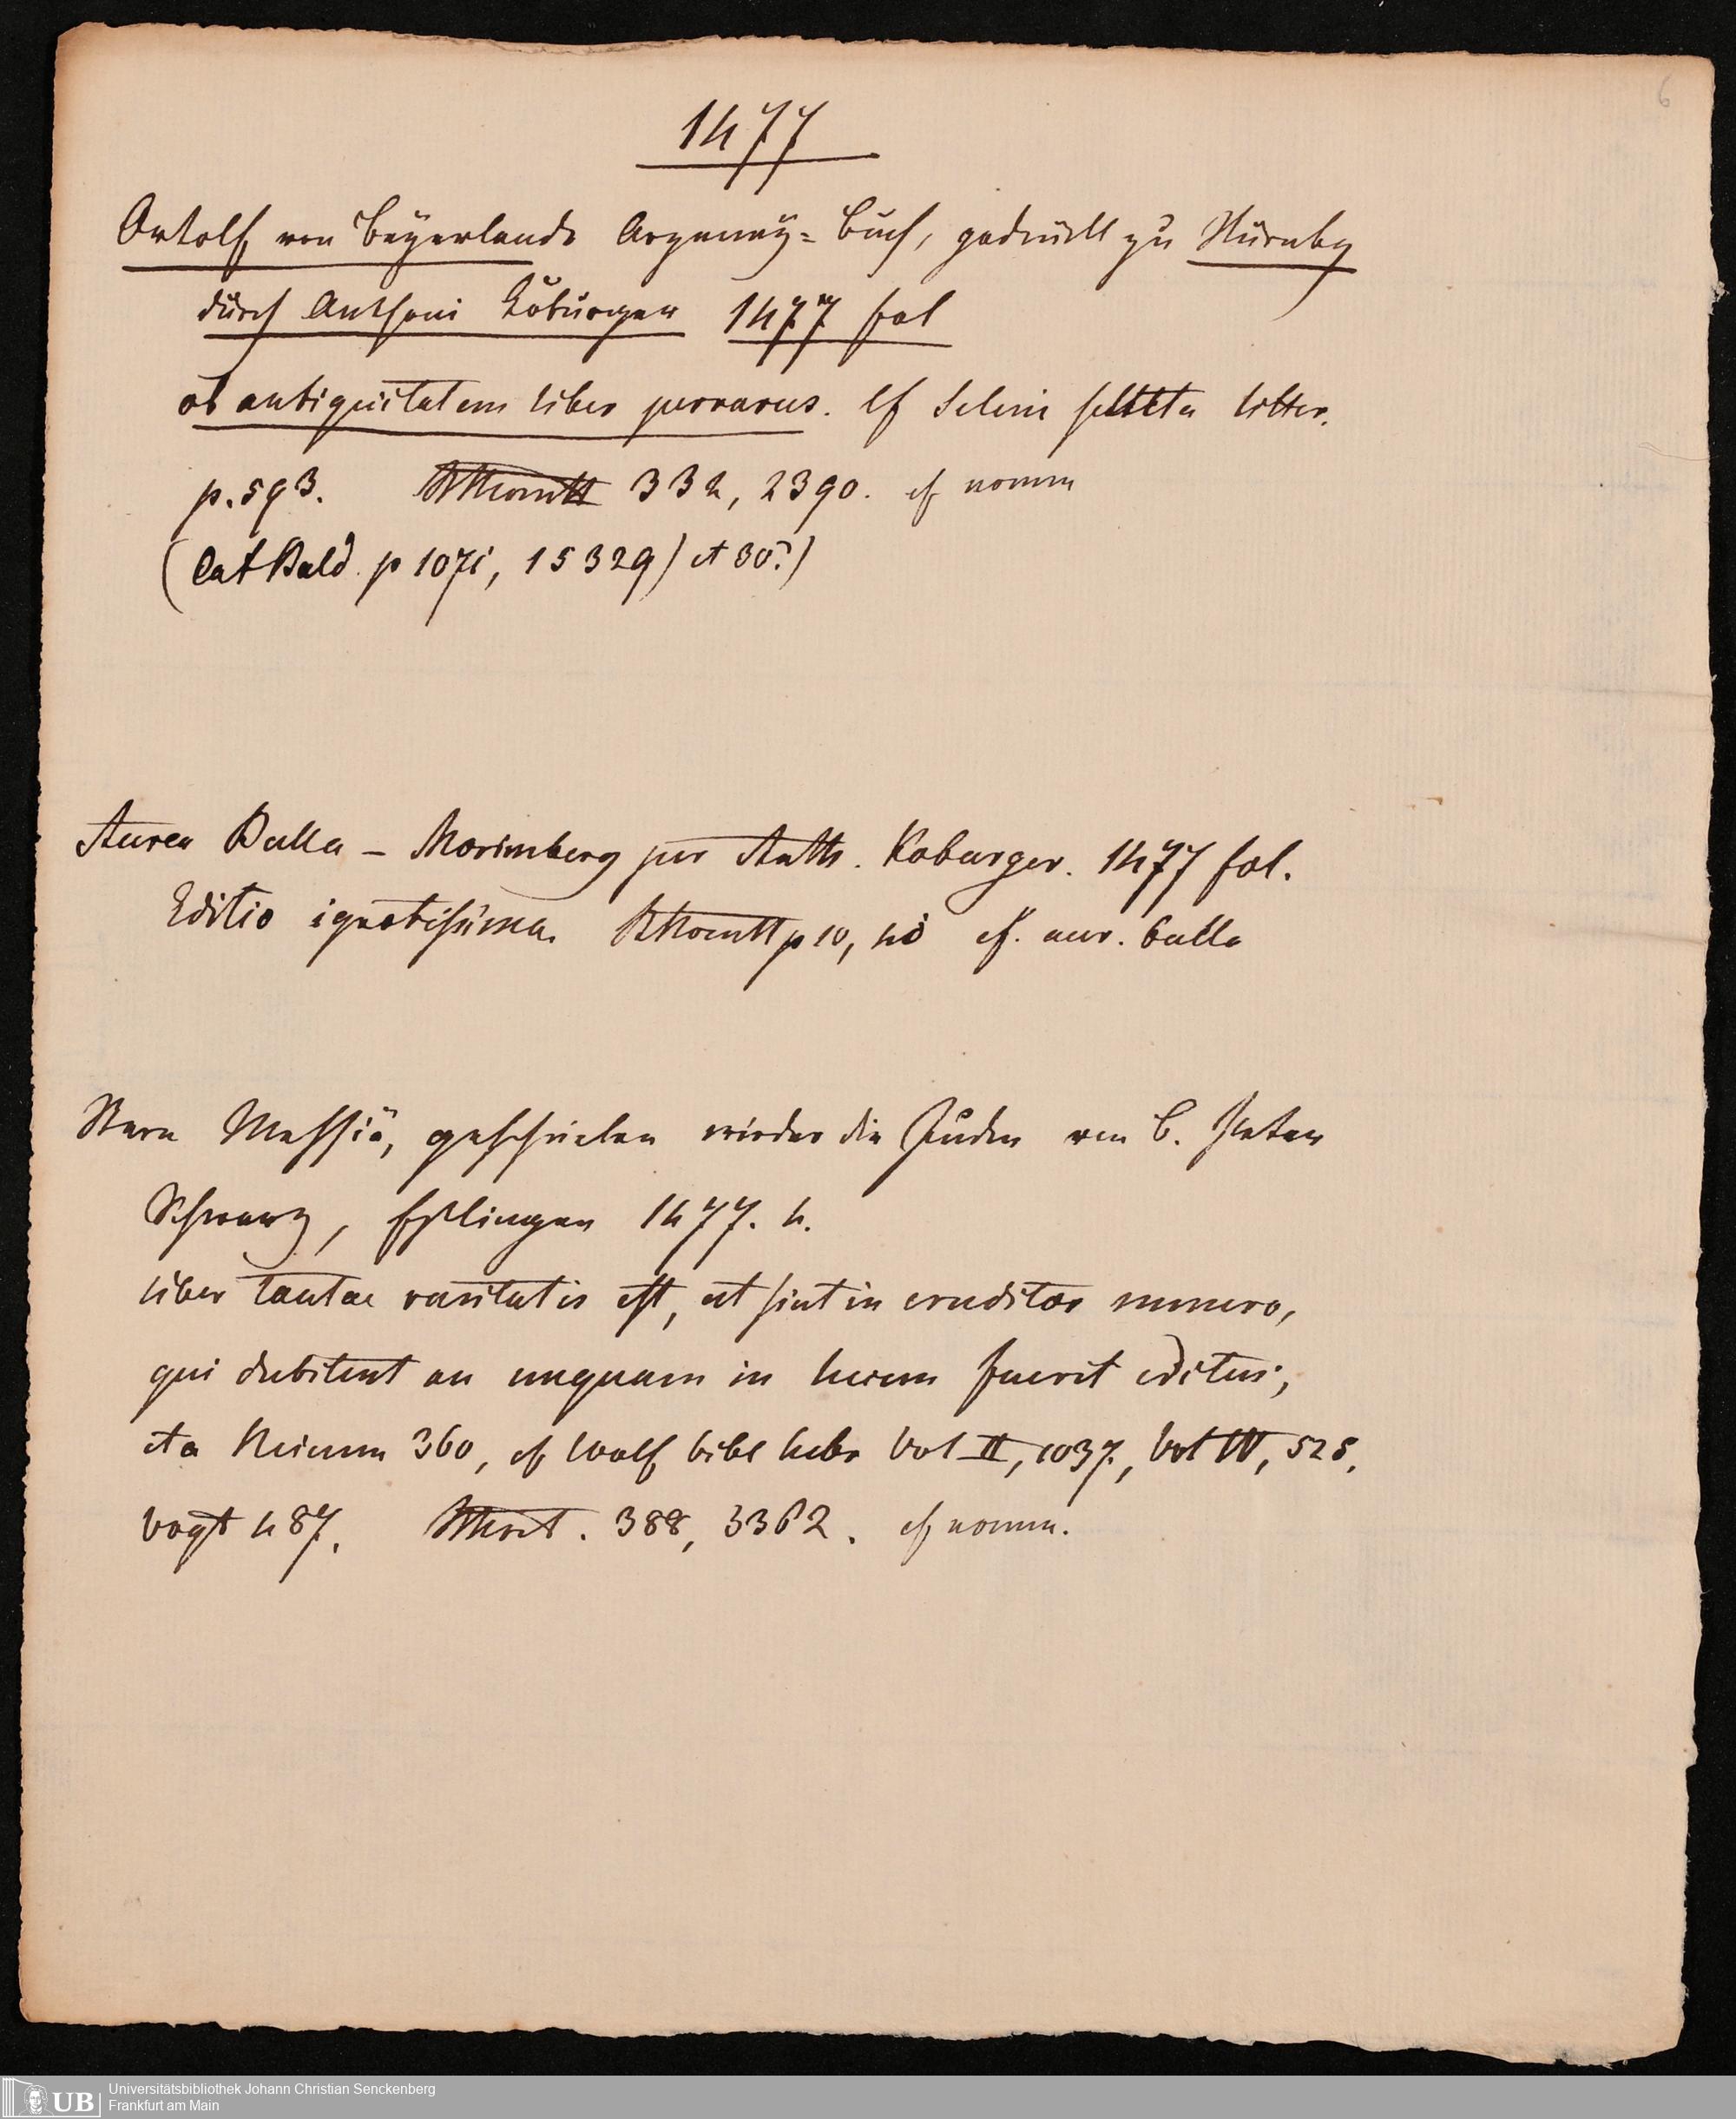 6
1477
Ortolf von Beÿerlande Arzneÿ=Buch, gedruckt zu Nürnbg
durch Anthoni Koburger 1477 fol
ob antiquitatem liber perrarus. Cf Selecta litter.
p. 593. 334, 2390. cf nomm
(Cat Bald. p 1071, 15329) et 30.)
Aurea Bulla – Norimberg per Anth. Koburger. 1477 fol.
Editio ignotissima. p 10, 40 cf. aur. bulla
Stern Messiä, geschrieben wieder die Juden von B. Peter
Schwarz, Esslingen 1477. 4.
liber tantae raritatis est, ut sint in eruditor numero,
qui dubitent an unquam in lucem fuerit editus;
ita 360, cf Wolf bibl hebr Vol II, 1037, Vol IV, 525,
Vogt 487. 388, 3362. cf nomm.
UB Universitätsbibliothek Johann Christian Senckenberg
Frankfurt am Main